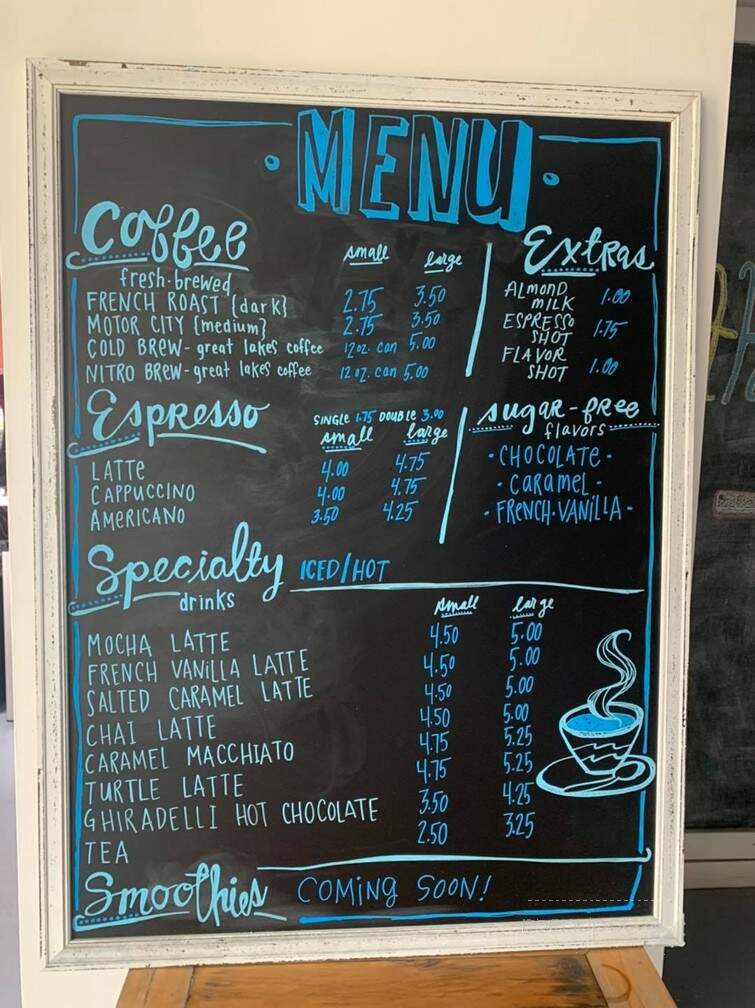 MENU
Coffee
small large
fresh-brewed
FRENCH ROAST {dark} 2.75 3.50
MOTOR CITY {medium} 2.75 3.50
COLD BREW - great lakes coffee 12 oz. can 5.00
NITRO BREW - great lakes coffee 12 oz. can 5.00
Extras
ALMOND
MILK 1.00
ESPRESSO
SHOT 1.75
FLAVOR
SHOT 1.00
Espresso
SINGLE 1.75 DOUBLE 3.00
small large
LATTE 4.00 4.75
CAPPUCCINO 4.00 4.75
AMERICANO 3.50 4.25
sugar-free
flavors
· CHOCOLATE ·
· CARAMEL ·
· FRENCH·VANILLA ·
Specialty ICED/HOT
drinks
small large
MOCHA LATTE 4.50 5.00
FRENCH VANILLA LATTE 4.50 5.00
SALTED CARAMEL LATTE 4.50 5.00
CHAI LATTE 4.50 5.00
CARAMEL MACCHIATO 4.75 5.25
TURTLE LATTE 4.75 5.25
GHIRADELLI HOT CHOCOLATE 3.50 4.25
TEA 2.50 3.25
Smoothies COMING SOON!